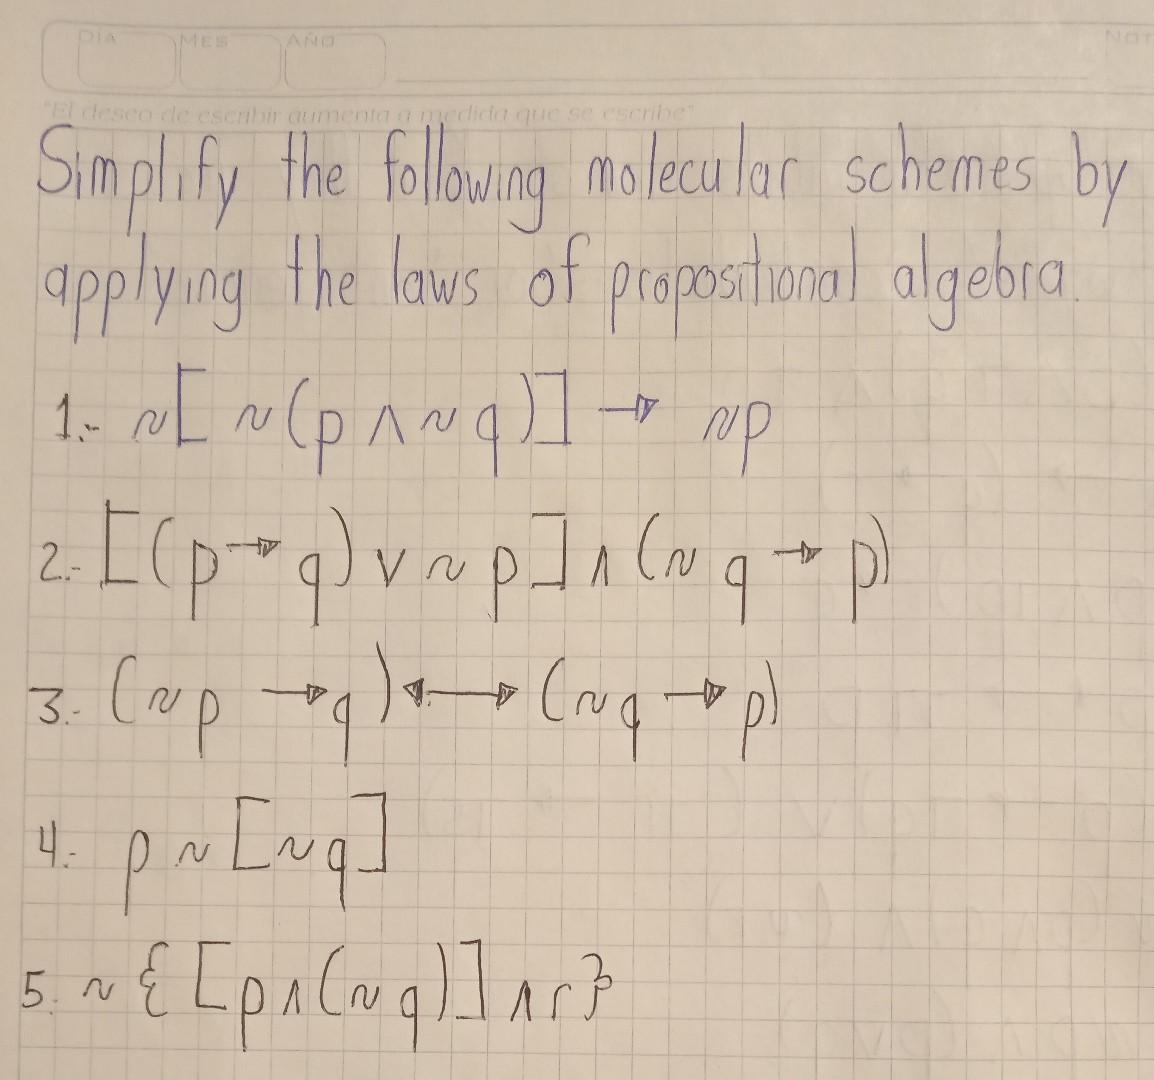 DÍA MES AÑO NOT
"El deseo de escribir aumenta a medida que se escribe"
Simplify the following molecular schemes by
applying the laws of propositional algebra.
1.- ~[ ~(p ∧ ~q)] → ~p
2.- [(p → q) ∨ ~p] ∧ (~q → p)
3.- (~p → q) ↔ (~q → p)
4.- p ~ [~q]
5. ~{[p ∧ (~q)] ∧ r}